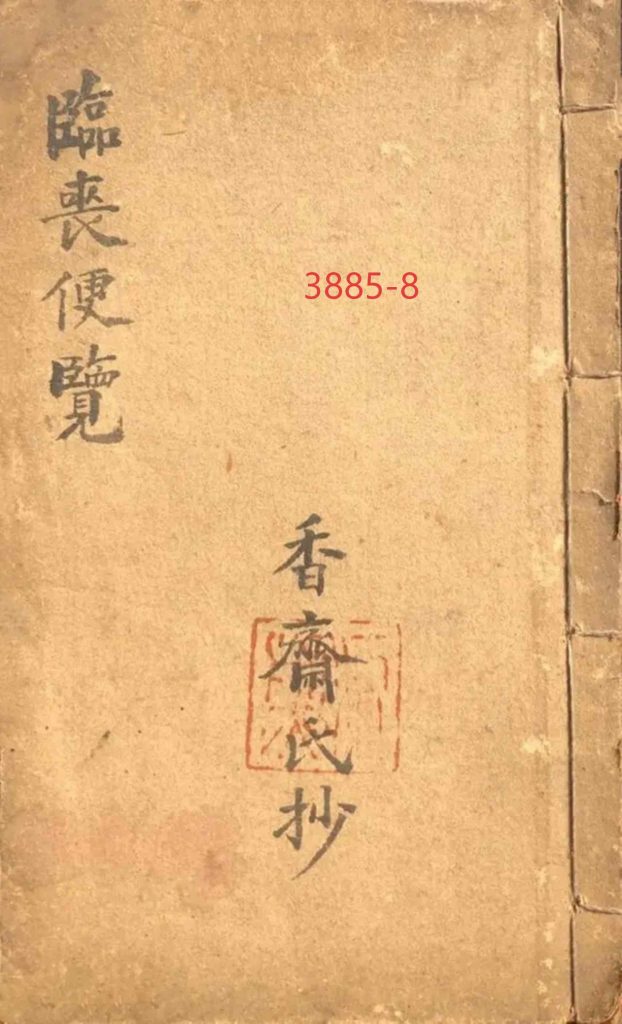 臨喪便覽
3885-8
香齋氏抄